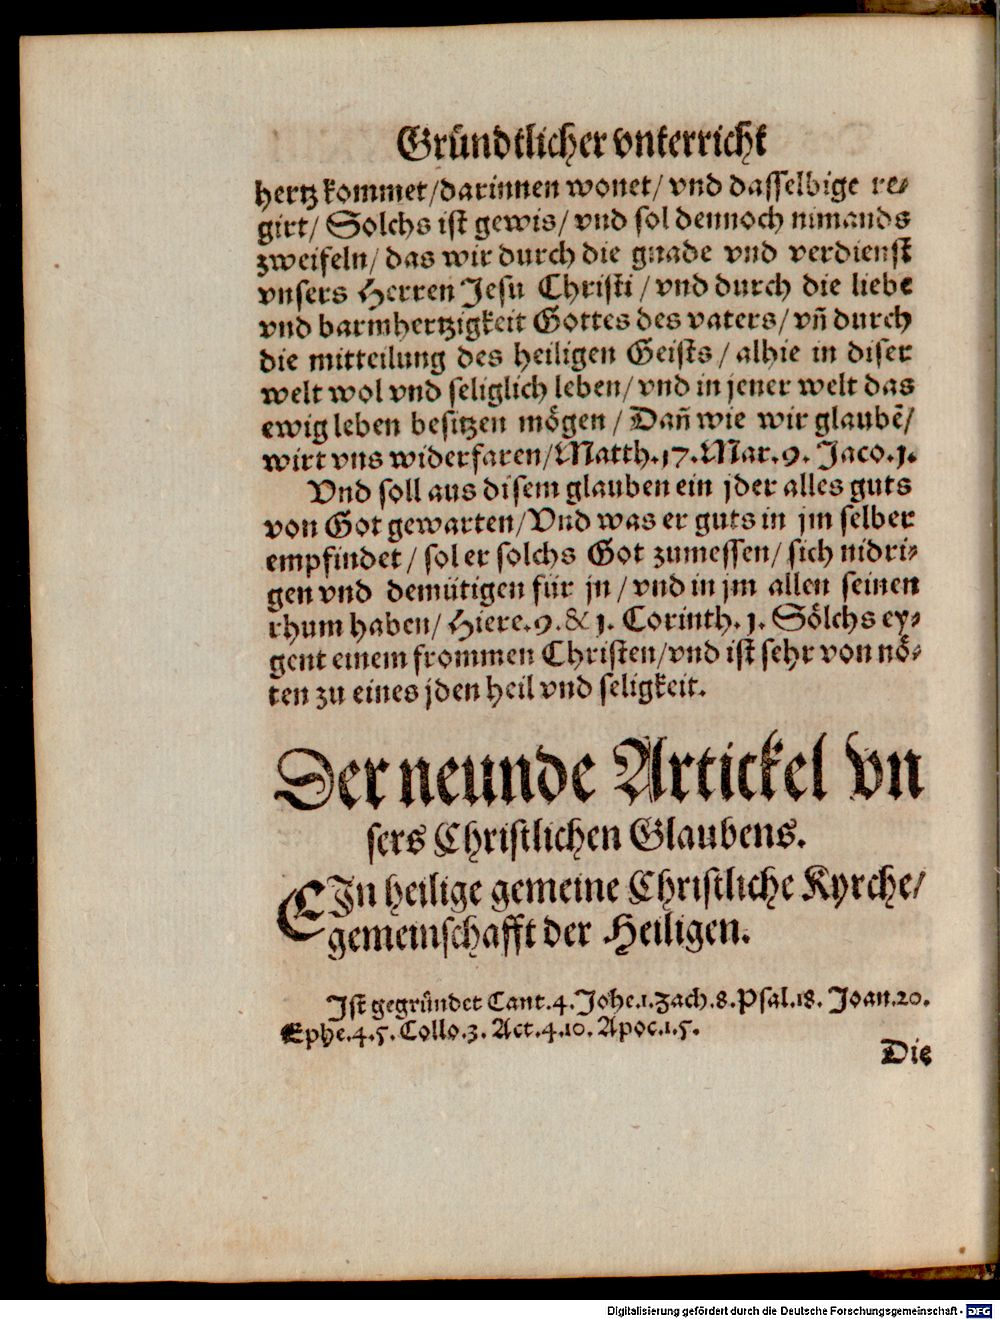 Gründtlicher vnterricht
hertz kommet/darinnen wonet/ vnd dasselbige re⸗
girt/ Solchs ist gewis/ vnd sol dennoch nimands
zweifeln/ das wir durch die gnade vnd verdienst
vnsers Herren Jesu Christi / vnd durch die liebe
vnd barmhertzigkeit Gottes des vaters/ vñ durch
die mitteilung des heiligen Geists / alhie in diser
welt wol vnd seliglich leben/ vnd in jener welt das
ewig leben besitzen mögen / Dañ wie wir glaubẽ/
wirt vns widerfaren/Matth.17.Mar.9. Jaco.1.
Vnd soll aus disem glauben ein jder alles guts
von Got gewarten/Vnd was er guts in jm selber
empfindet / sol er solchs Got zumessen/ sich nidri⸗
gen vnd demütigen für jn / vnd in jm allen seinen
rhum haben/ Hiere.9.& 1. Corinth.1. Sölchs ey⸗
gent einem frommen Christen/vnd ist sehr von nö⸗
ten zu eines jden heil vnd seligkeit.
Der neunde Artickel vn
sers Christlichen Glaubens.
EIn heilige gemeine Christliche Kyrche/
gemeinschafft der Heiligen.
Ist gegründet Cant.4.Johe.1.Zach.8.Psal.18. Joan.20.
Ephe.4.5. Collo.3. Act.4.10. Apoc.1.5.
Die
Digitalisierung gefördert durch die Deutsche Forschungsgemeinschaft - DFG